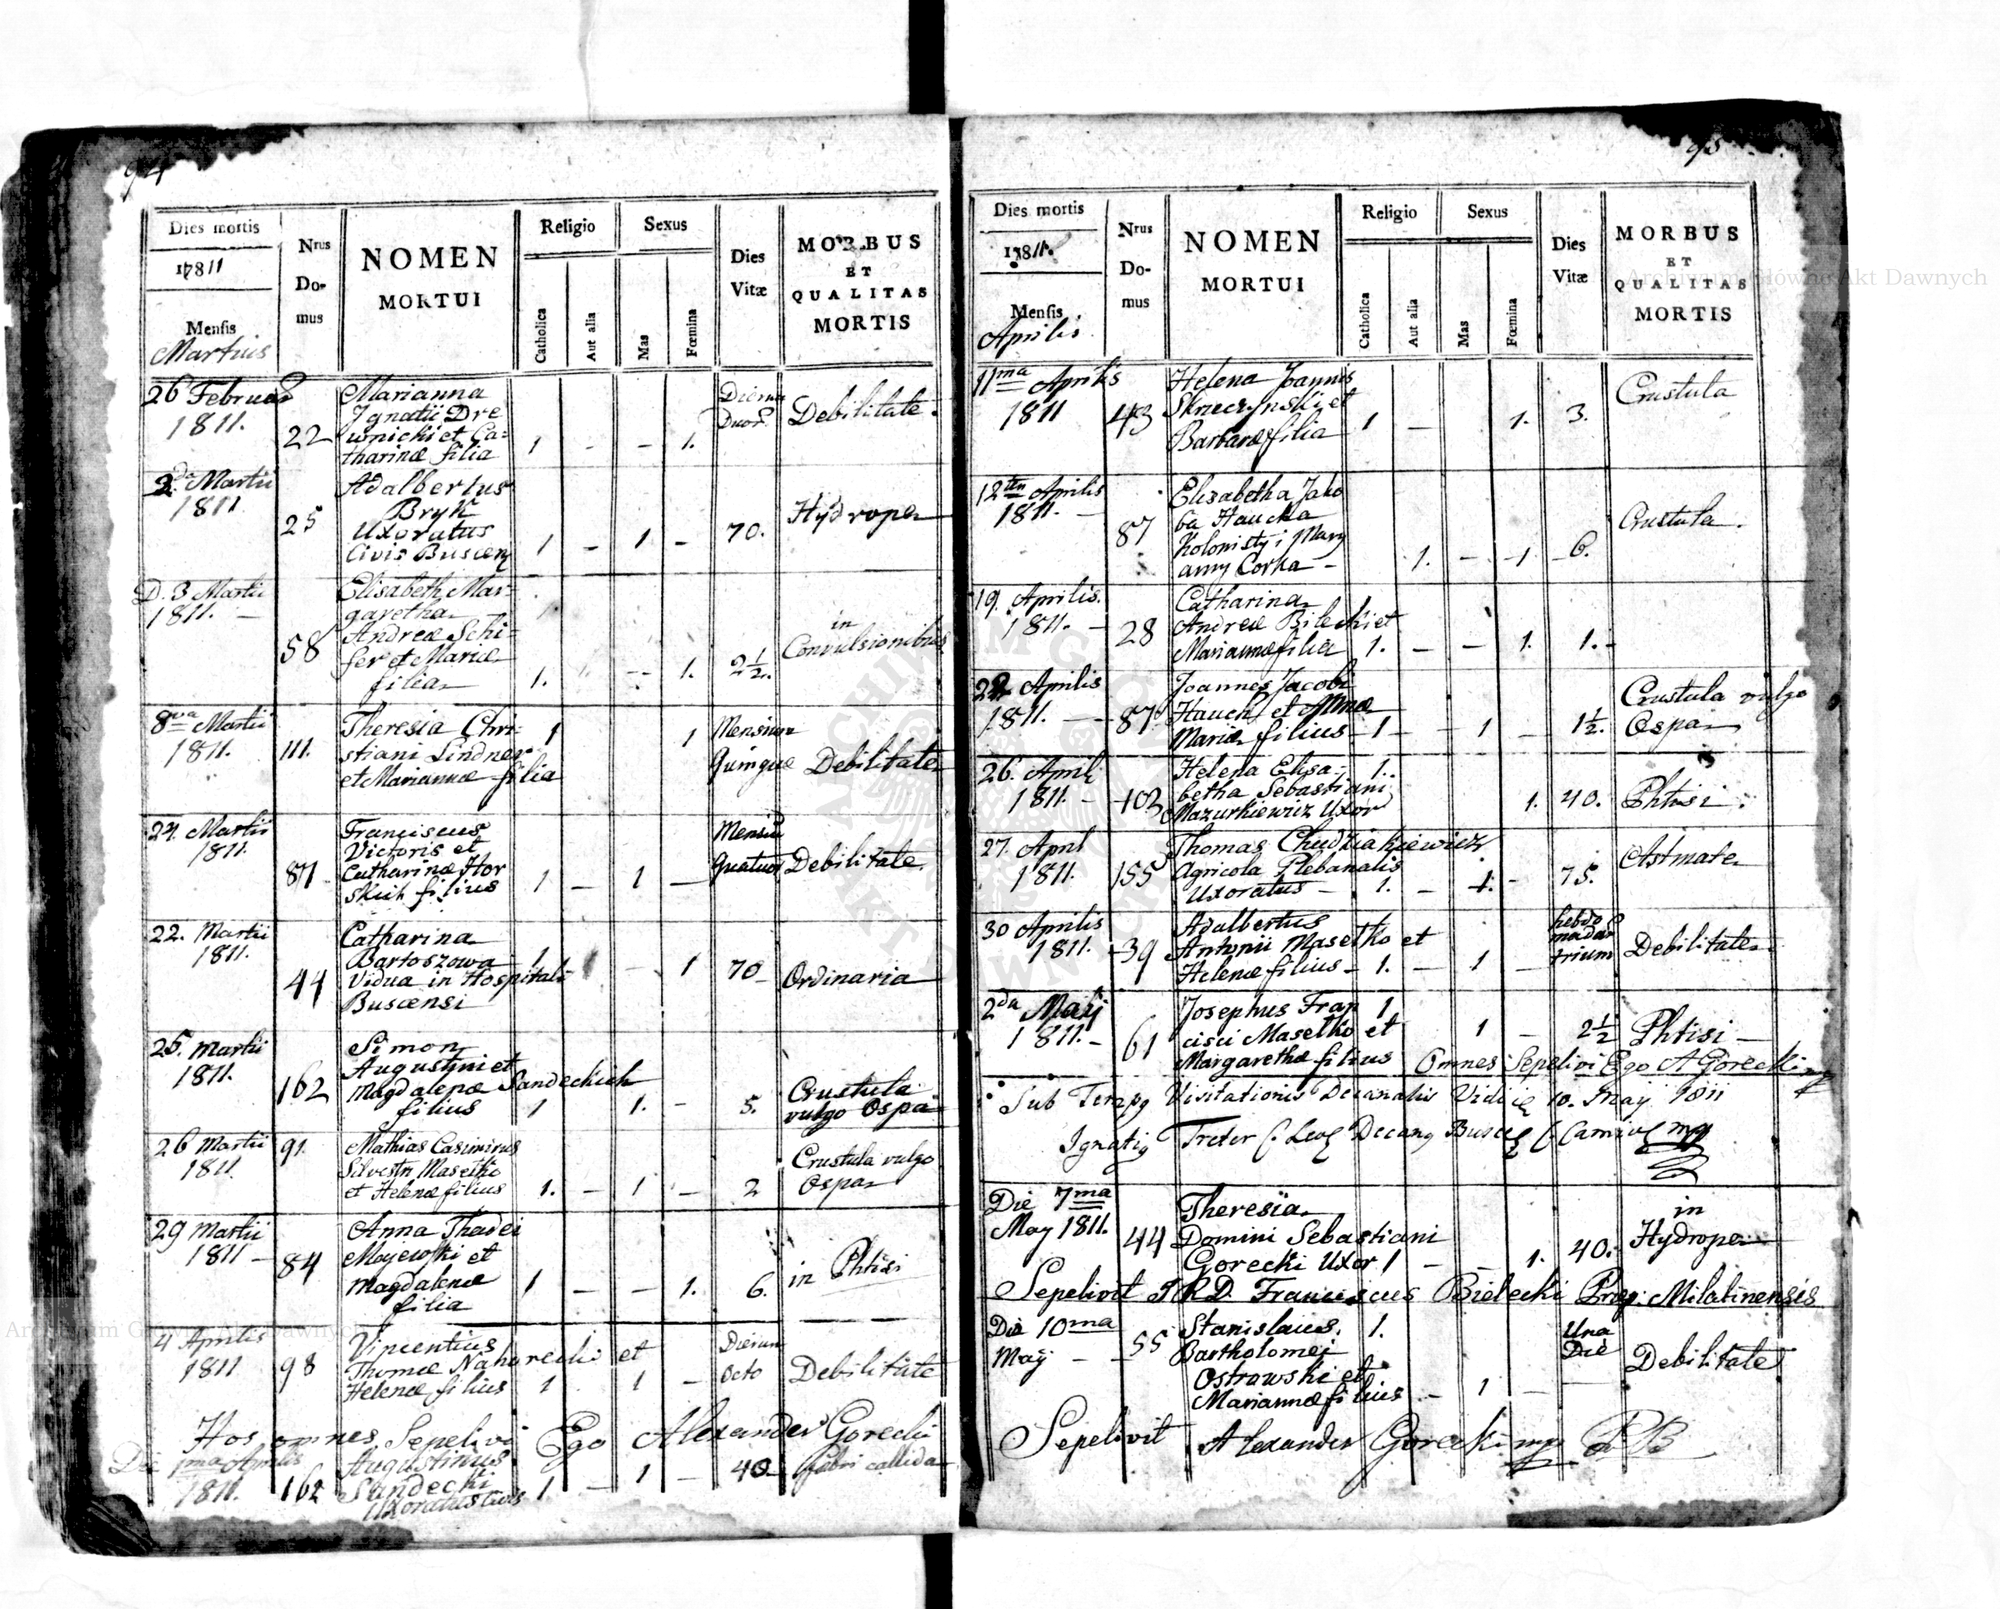 94
Dies mortis
1811
Mensis
Martius
Nrus
Do-
mus
NOMEN
MORTUI
Religio
Catholica
Aut alia
Sexus
Mas
Fœmina
Dies
Vitæ
MORBUS
ET
QUALITAS
MORTIS
26 Februar
1811.
22
Marianna
Ignatii Dre
wnicki et Ca-
tharinæ filia
1 - - 1.
Dierum
Duor.
Debilitate.
2da Martii
1811
25
Adalbertus
Bryk
Uxoratus
Civis Buscen
1 - 1 -
70.
Hydrope
D. 3 Martii
1811. -
58
Elisabeth Mar-
garetha
Andreæ Schi-
fer et Mariæ
filia
1. - 1.
2 1/2.
in
Convulsionibus
8va Martii
1811.
111.
Theresia Chri-
stiani Lindner
et Mariannæ filia
1 1
Mensium
Quinque
Debilitate
24. Martii
1811.
87
Franciscus
Victoris et
Catharinæ Hor
filius
1 - 1 -
Mensiu
Quatuor
Debilitate
22. Martii
1811.
44
Catharina
Bartoszowa
Vidua in Hospitali
Buscensi
1 - 1
70
Ordinaria
25. Martii
1811.
162
Simon
Augustini et
Magdalenæ Sandeckich
filius
1 1. -
5.
Crustula
vulgo Ospa
26 Martii
1811.
91.
Mathias Casimirus
Silvestri Masetko
et Helenæ filius
1. - 1 -
2
Crustula vulgo
Ospa
29 Martii
1811 -
84
Anna Thadei
Mayewski et
Magdalenæ
filia
1 - - 1.
6.
in Phtisi
4 Aprilis
1811
98
Vincentius
Thomæ Nahorecki et
Helenæ filius
1 1 -
Dierum
Octo
Debilitate
Hos omnes Sepelivi Ego Alexander Gorecki
Die 1ma Aprilis
1811.
162
Augustinus
Sandecki
Uxoratus
1 - 1 -
40
febri callida
95
Dies mortis
1811.
Mensis
Aprilis
Nrus
Do-
mus
NOMEN
MORTUI
Religio
Catholica
Aut alia
Sexus
Mas
Fœmina
Dies
Vitæ
MORBUS
ET
QUALITAS
MORTIS
11ma Aprilis
1811
43
Helena Joannis
Skrzeczynski et
Barbaræ filia
1 - 1.
3.
Crustula
12ten Aprilis
1811. -
87
Elisabetha Jako
ba Haucka
Kolonisty i Mary
anny Corka -
1. - 1
6.
Crustula.
19. Aprilis.
1811. -
28
Catharina
Andreæ Bilecki et
Mariannæ filia
1. - - 1.
1. -
22 Aprilis
1811. -
87
Joannes Jacobi
Hauch et Annæ
Mariæ filius
1 - - 1 -
1 1/2.
Crustula vulgo
Ospa
26. April
1811. -
102
Helena Elisa-
betha Sebastiani
Mazurkiewicz Uxor
1. 1.
40.
Phtisi.
27. April
1811.
155
Thomas Chudziakiewicz
Agricola Plebanalis
Uxoratus -
1. - 1. -
75.
Astmate
30 Aprilis
1811.
39
Adalbertus
Antonii Masetko et
Helenæ filius
1. - 1 -
hebdo
madar
trium
Debilitate
2da Maij
1811. -
61
Josephus Fran
cisci Masetko et
Margarethæ filius
1 1 -
2 1/2
Phtisi -
Omnes Sepelivi Ego A Gorecki mp
Sub Visitationis Decanalis Vidi 10. May 1811
Treter
Die 7ma
May 1811.
44
Theresia
Domini Sebastiani
Gorecki Uxor
1 - - 1.
40.
in
Hydrope
Sepelivit RD. Franciscus Bielecki Præp: Milatinensis
Die 10ma
May - -
55
Stanislaus
Bartholomei
Ostrowski et
Mariannæ filius
1. - 1 -
Una
Die
Debilitate
Sepelivit Alexander Gorecki mp
Archiwum Główne Akt Dawnych
Archiwum Główne Akt Dawnych